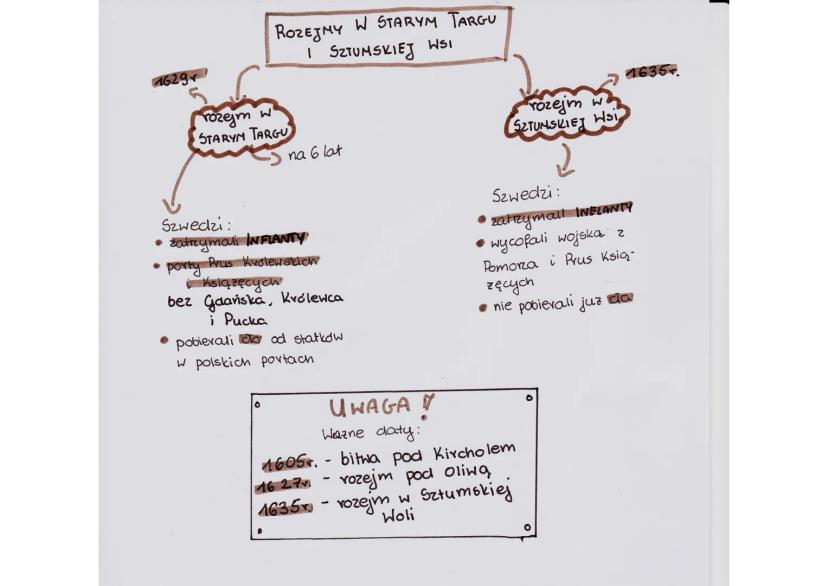 ROZEJMY W STARYM TARGU
I SZTUMSKIEJ WSI
1629r
rozejm w
STARYM TARGU
na 6 lat
Szwedzi:
• zatrzymali INFLANTY
• porty Prus Królewskich
i Książęcych
bez Gdańska, Królewca
i Pucka
• pobierali cło od statków
w polskich portach
1635r.
rozejm w
SZTUMSKIEJ WSI
Szwedzi:
• zatrzymali INFLANTY
• wycofali wojska z
Pomorza i Prus Ksią-
żęcych
• nie pobierali już cła
UWAGA!
Ważne daty:
1605r. - bitwa pod Kircholem
1627r. - rozejm pod Oliwą
1635r. - rozejm w Sztumskiej
Woli